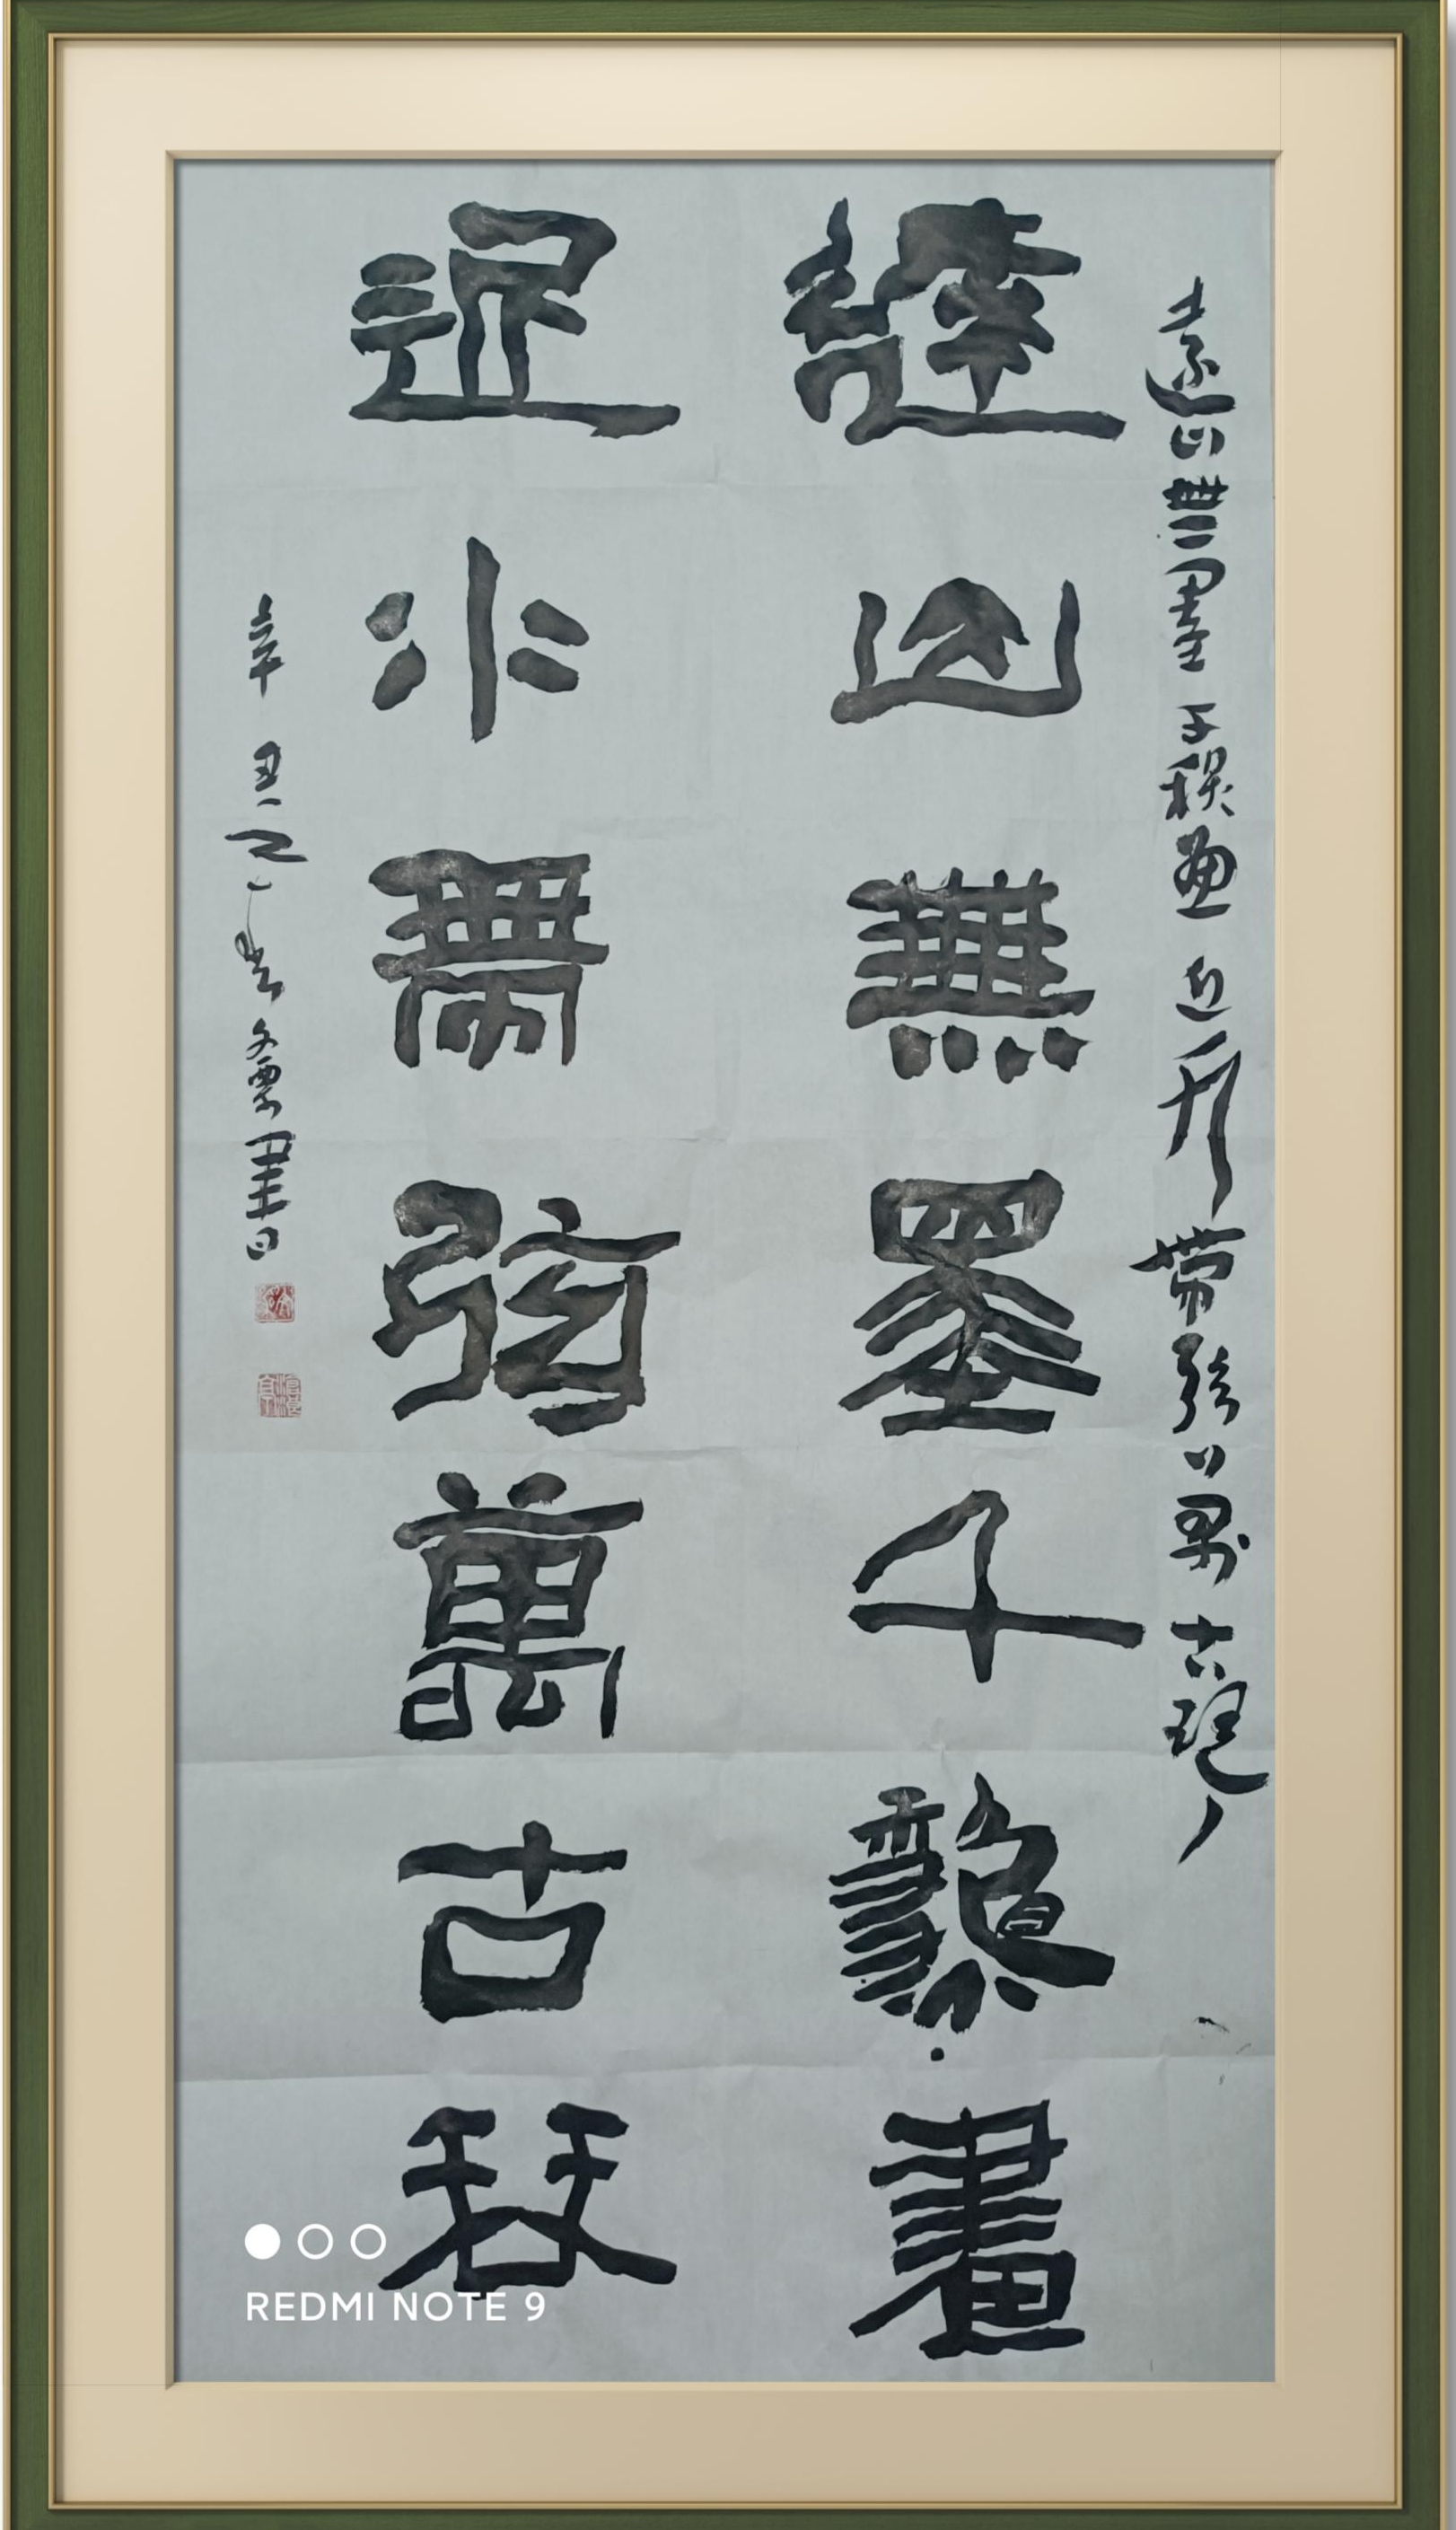 遠山無墨千秋畫近水帶弦萬古琴
遠山無墨千秋畫
近水帶弦萬古琴
辛丑之春書
REDMI NOTE 9